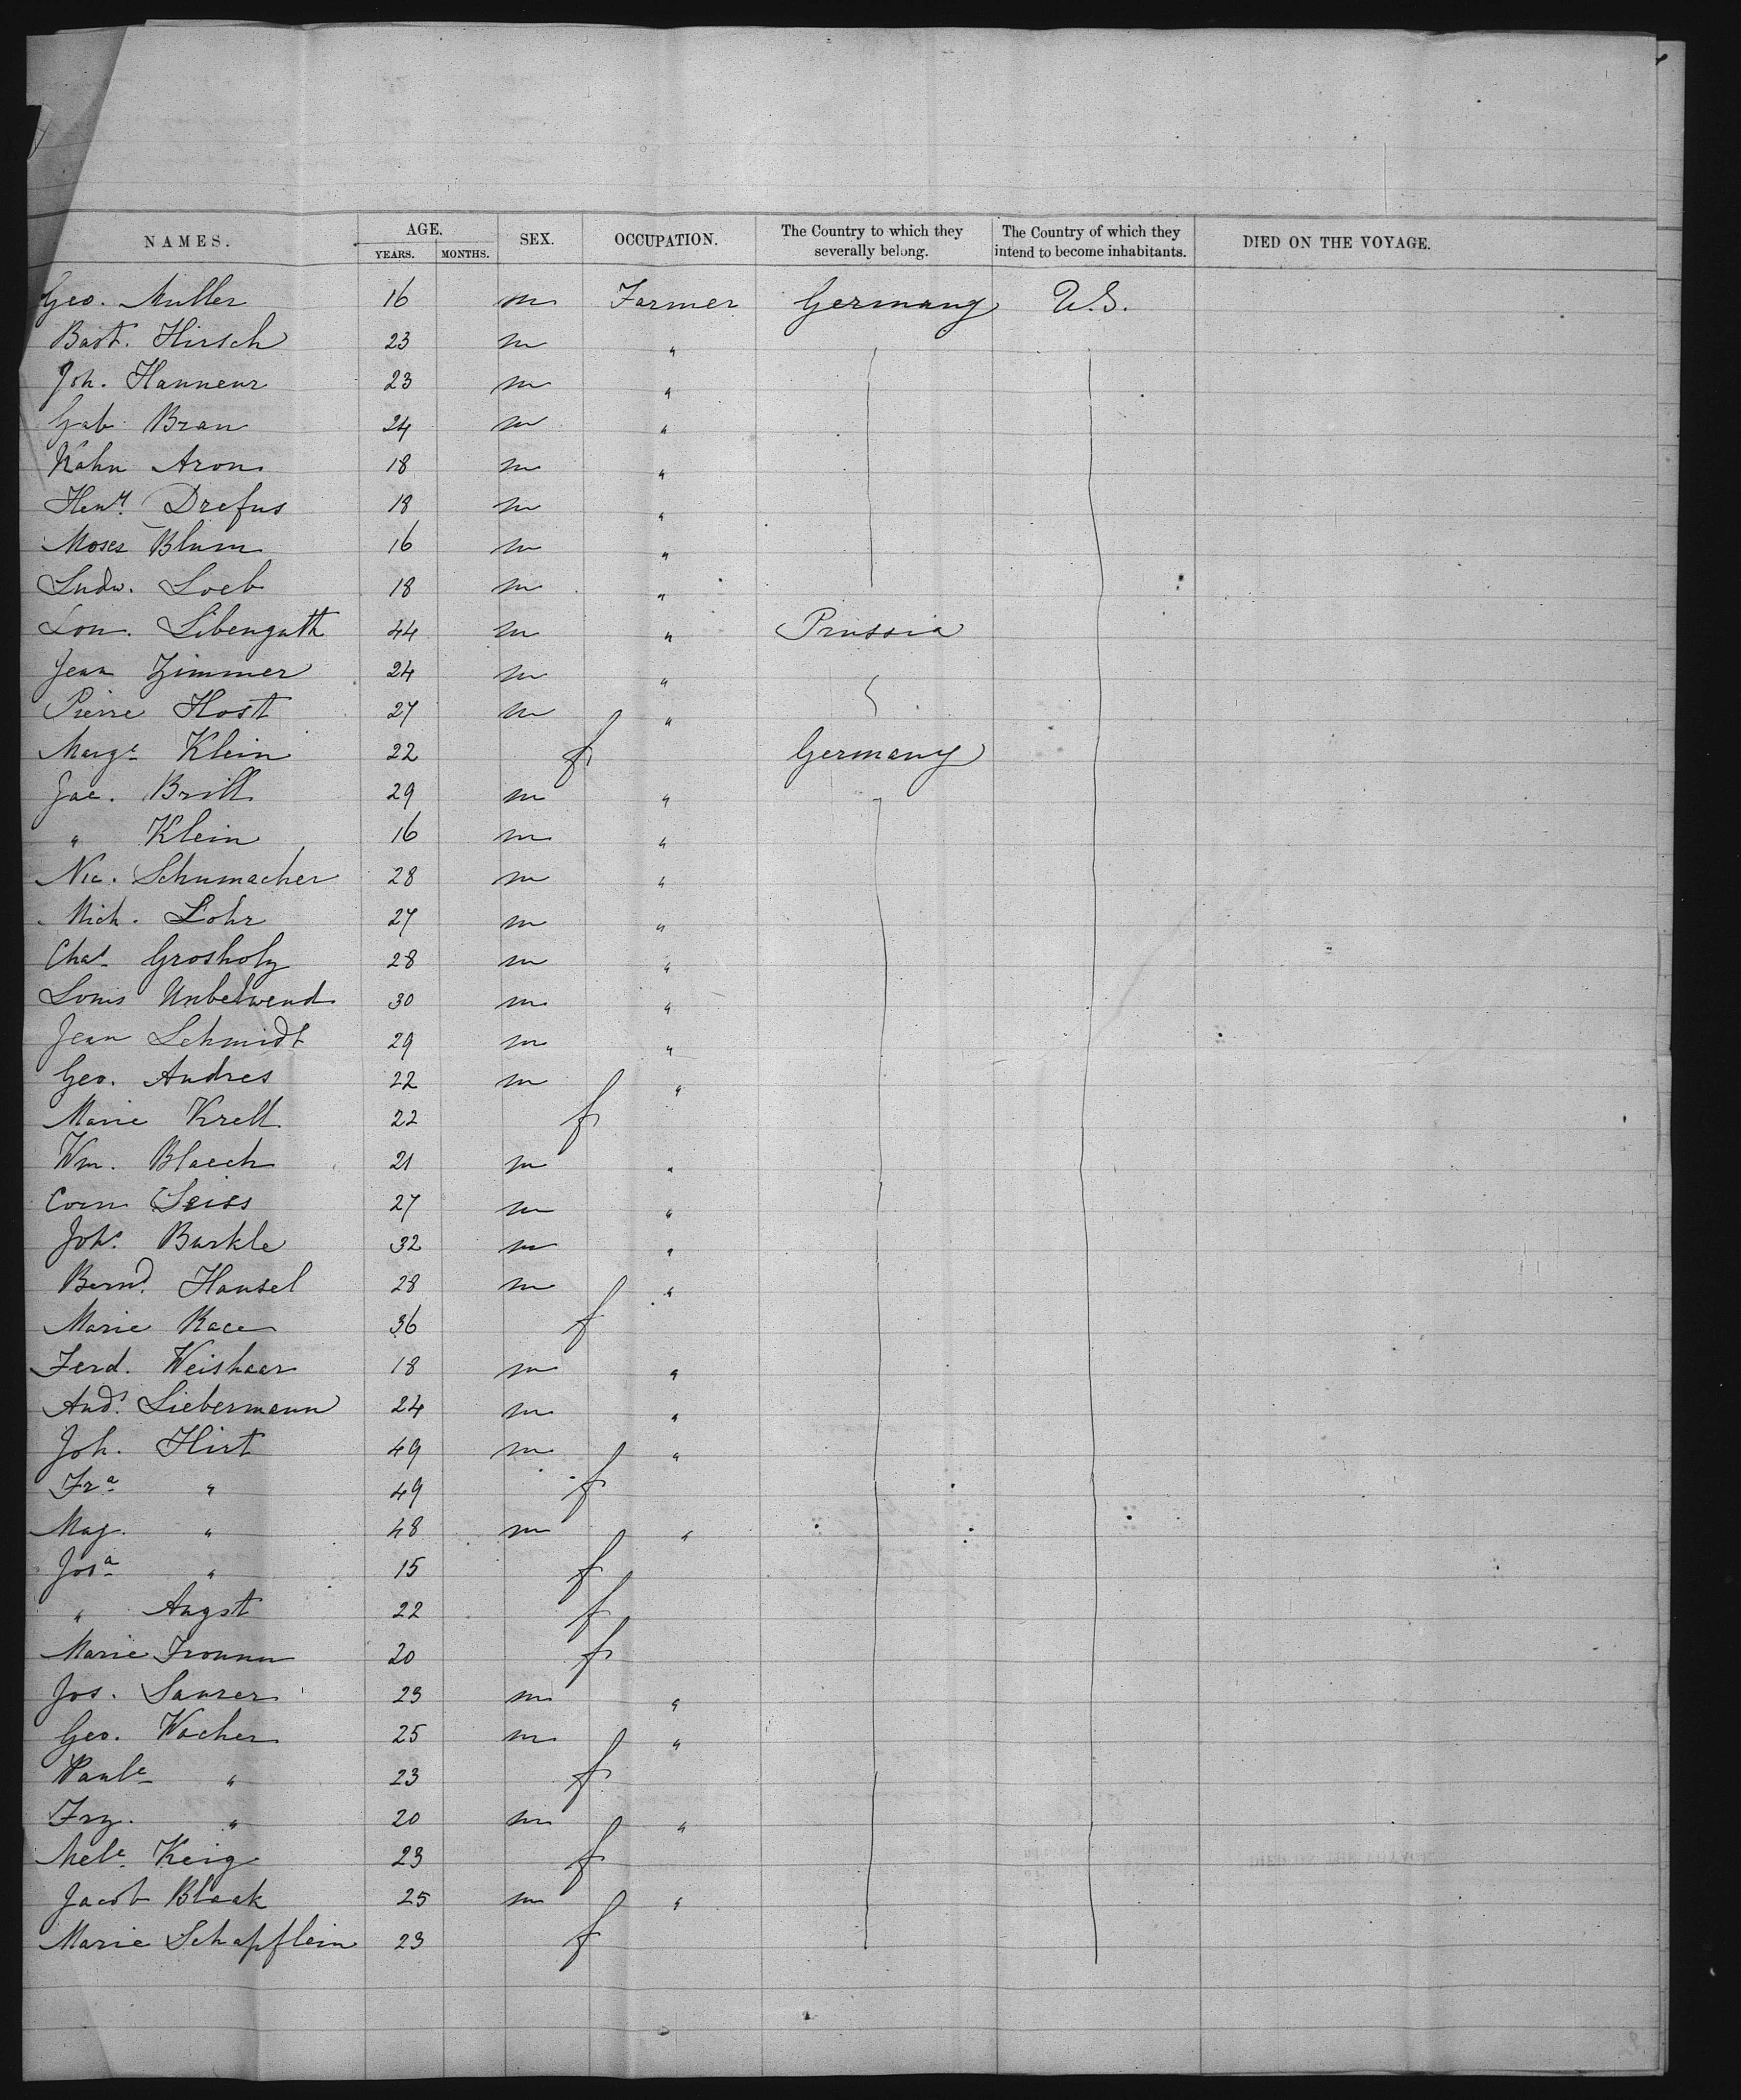 NAMES. AGE. SEX. OCCUPATION. The Country to which they severally belong. The Country of which they intend to become inhabitants. DIED ON THE VOYAGE.
YEARS. MONTHS.
Geo. Muller 16 m Farmer Germany U.S.
Bast. Hirsch 23 m "
Joh. Hanneur 23 m "
Gab Bran 24 m "
Kahn Aron 18 m "
Heny. Drefus 18 m "
Moses Blum 16 m "
Ludw. Loeb 18 m "
Lou. Libenguth 44 m " Prussia
Jean Zimmer 24 m "
Pierre Host 27 m "
Marge Klein 22 f Germany
Jac. Brill 29 m "
" Klein 16 m "
Nic. Schumacher 28 m "
Mich. Lohr 27 m "
Chas Grosholz 28 m "
Louis Unbetwend 30 m "
Jean Schmidt 29 m "
Geo. Andres 22 m "
Marie Krell 22 f
Wm. Blaech 21 m "
Corn Seiss 27 m "
Johs. Burkle 32 m "
Bernd. Hansel 28 m "
Marie Race 36 f
Ferd. Weishaar 18 m "
Ands. Liebermann 24 m "
Joh. Hirt 49 m "
Fra " 49 f
Mag. " 48 m "
Josa " 15 f
" Angst 22 f
Marie 20 f
Jos. Saurer 23 m "
Geo. Wacher 25 m "
Paule " 23 f
Frz. " 20 m "
Mele Keig 23 f
Jacob Blaak 25 m "
Marie Schapflein 23 f